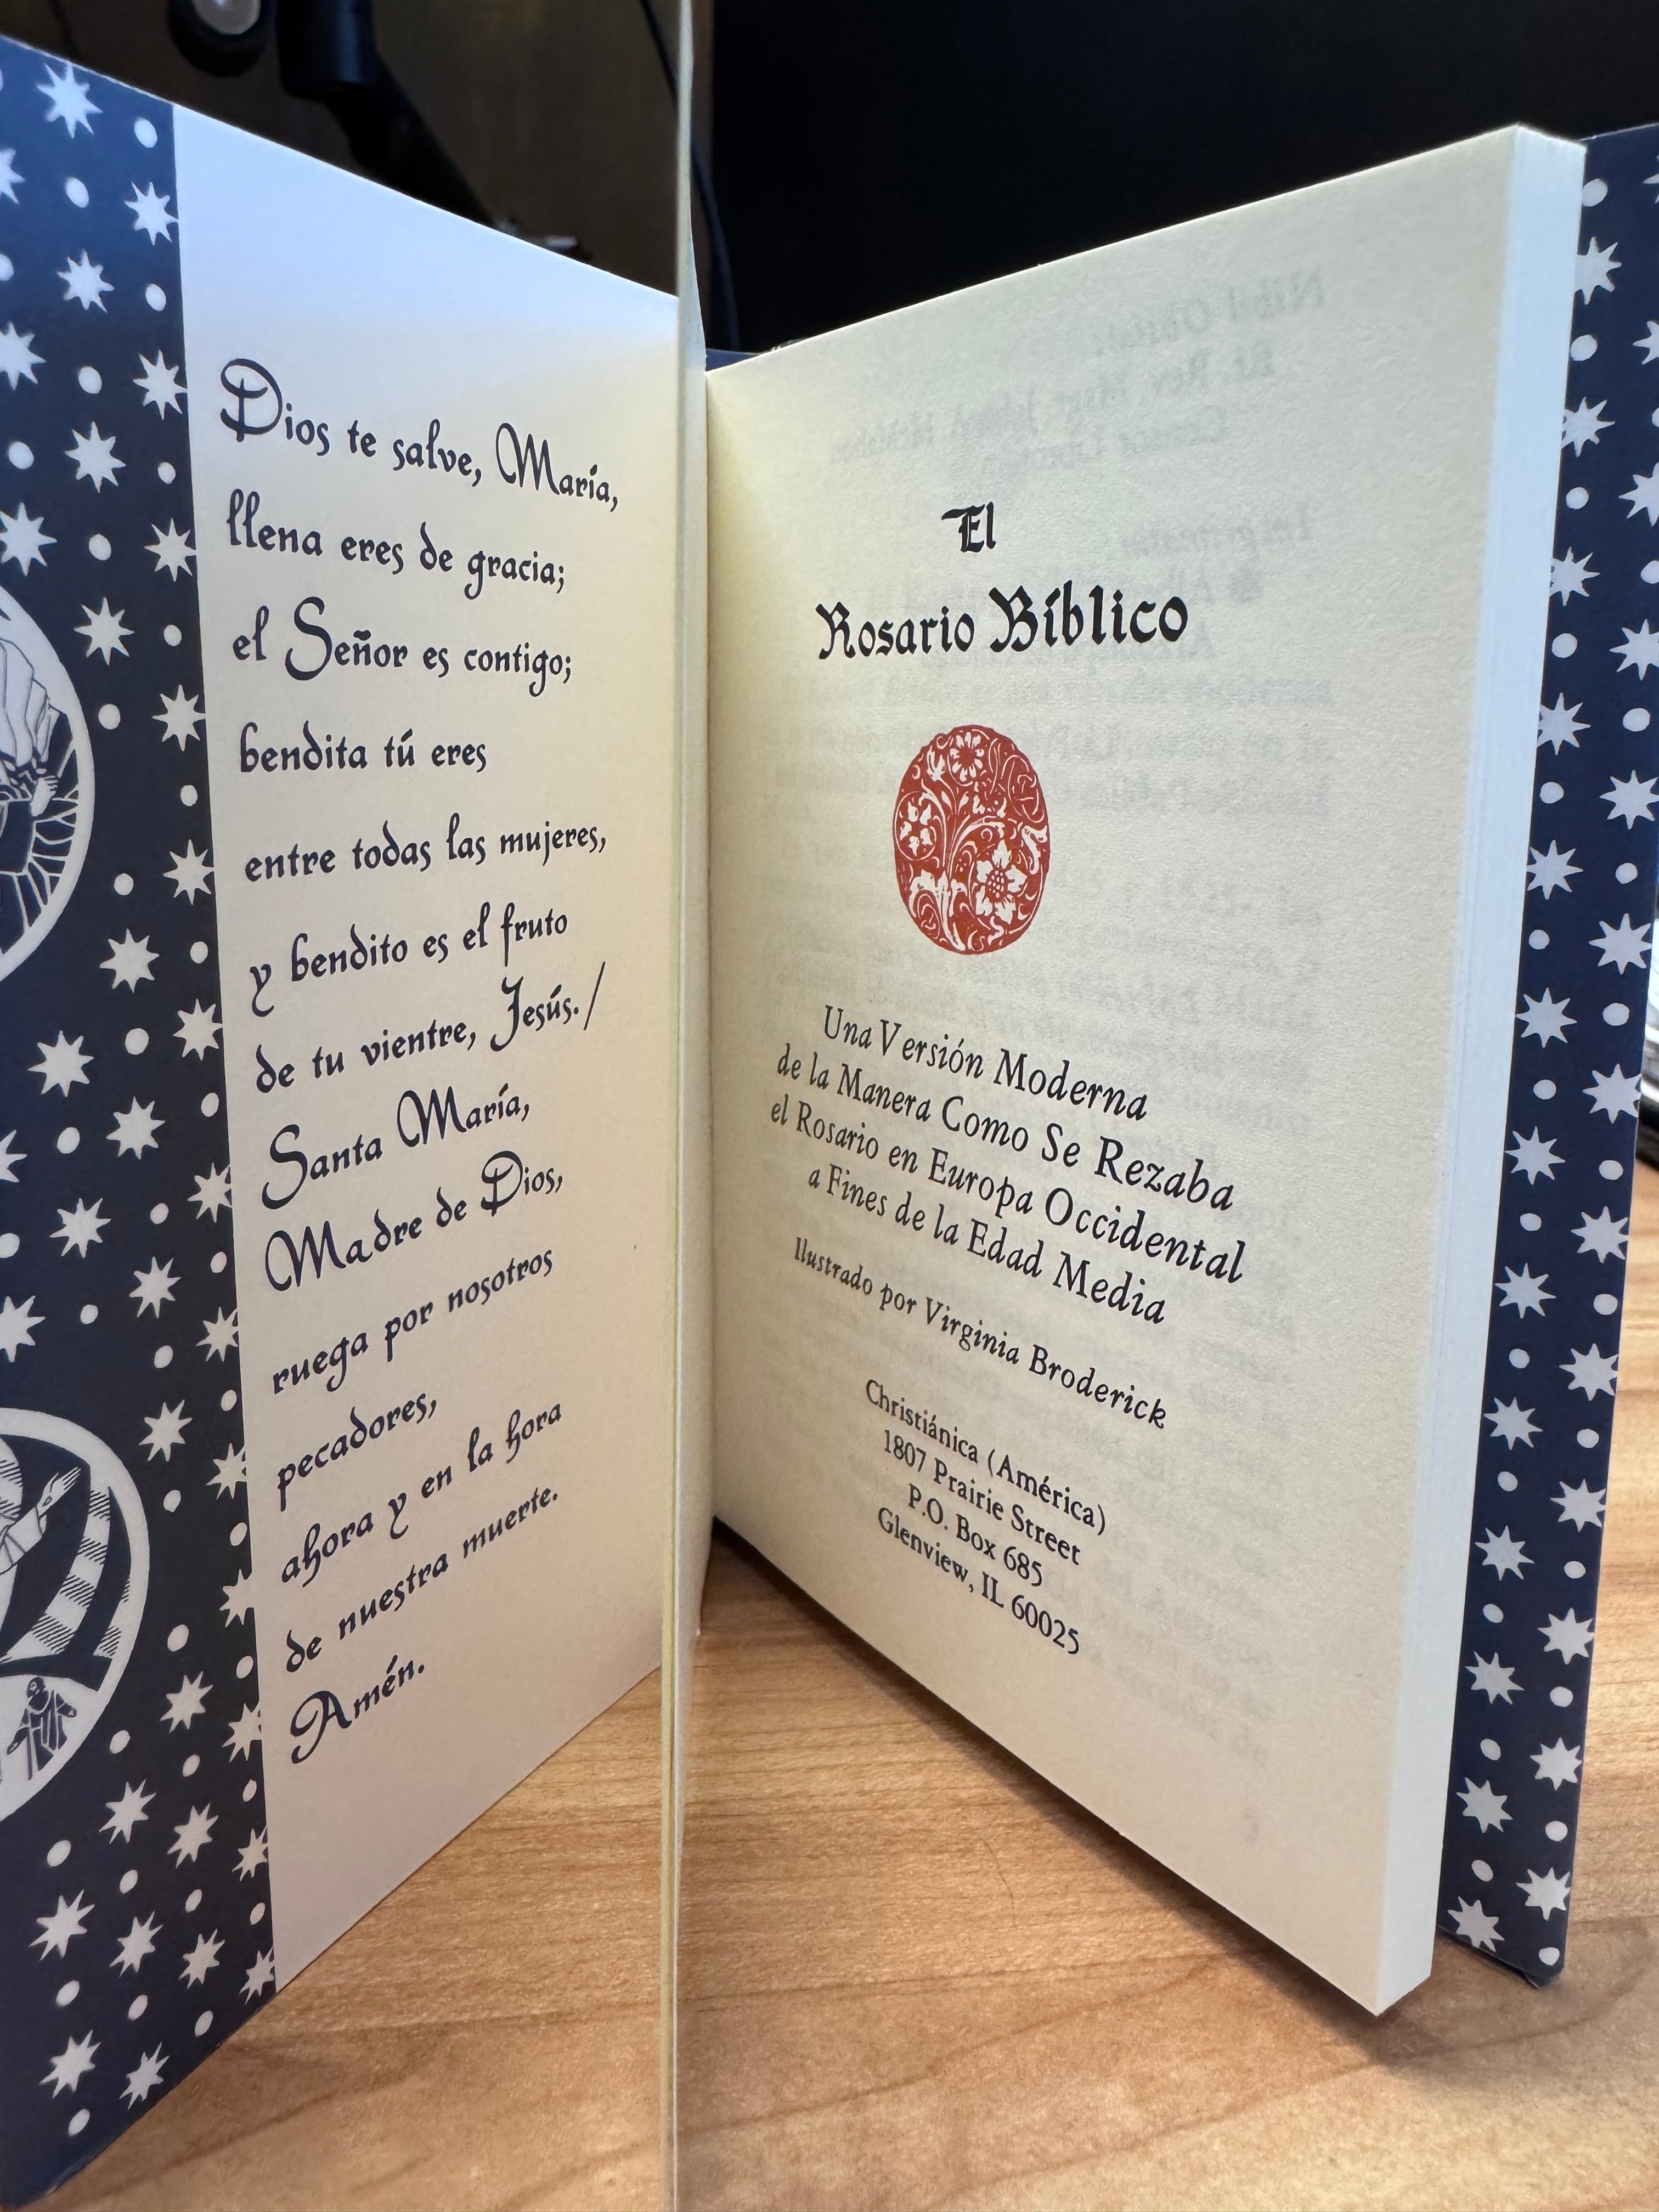 Dios te salve, María,
llena eres de gracia;
el Señor es contigo;
bendita tú eres
entre todas las mujeres,
y bendito es el fruto
de tu vientre, Jesús./
Santa María,
Madre de Dios,
ruega por nosotros
pecadores,
ahora y en la hora
de nuestra muerte.
Amén.
El
Rosario Bíblico
Una Versión Moderna
de la Manera Como Se Rezaba
el Rosario en Europa Occidental
a Fines de la Edad Media
Ilustrado por Virginia Broderick
Christiánica (América)
1807 Prairie Street
P.O. Box 685
Glenview, IL 60025